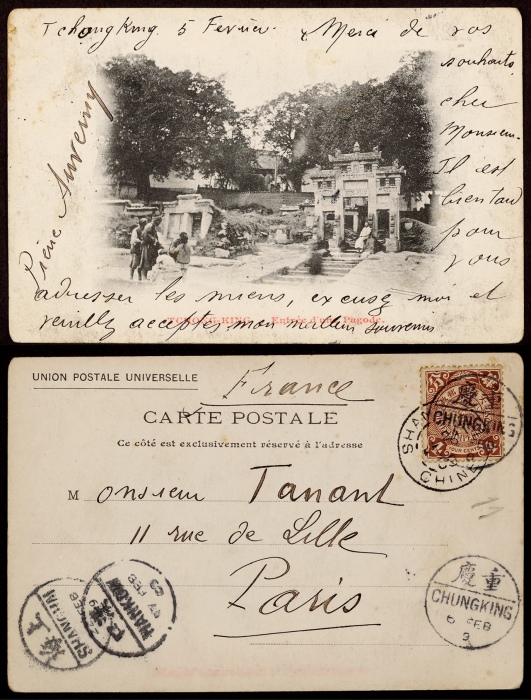 Tchongking 5 Fevrier.
Merci de vos
souhaits
cher
Monsieur.
Il est
bien tard
pour
vous
adresser les miens, excusez moi et
veuillez accepter mon meilleur souvenir
Pierre
TCHONG-KING. Entrée d'une Pagode.
UNION POSTALE UNIVERSELLE
France
CARTE POSTALE
Ce côté est exclusivement réservé à l'adresse
Monsieur Tanant
11 rue de Lille
Paris
重慶
CHUNGKING
SHANGHAI
CHINE
重慶
CHUNGKING
6 FEB
3
HANKOW
FEB
SHANGHAI
FEB